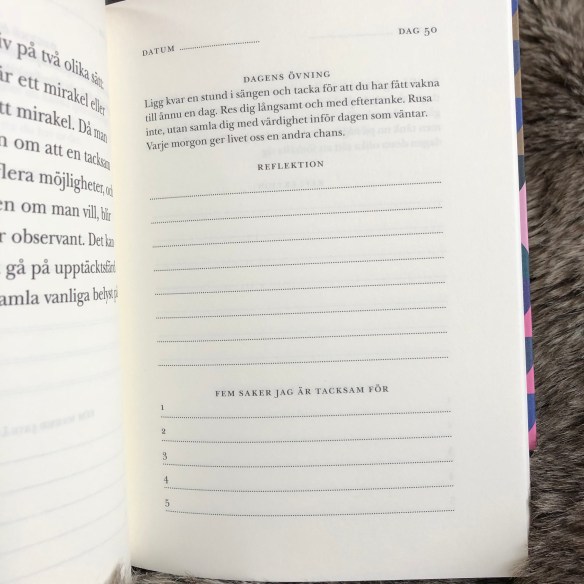 iv på två olika sätt.
är ett mirakel eller
tt mirakel. Då man
n om att en tacksam
flera möjligheter, och
en om man vill, blir
r observant. Det kan
gå på upptäcktsfärd
amla vanliga belyst
DATUM
DAG 50
DAGENS ÖVNING
Ligg kvar en stund i sängen och tacka för att du har fått vakna
till ännu en dag. Res dig långsamt och med eftertanke. Rusa
inte, utan samla dig med värdighet inför dagen som väntar.
Varje morgon ger livet oss en andra chans.
REFLEKTION
FEM SAKER JAG ÄR TACKSAM FÖR
1
2
3
4
5